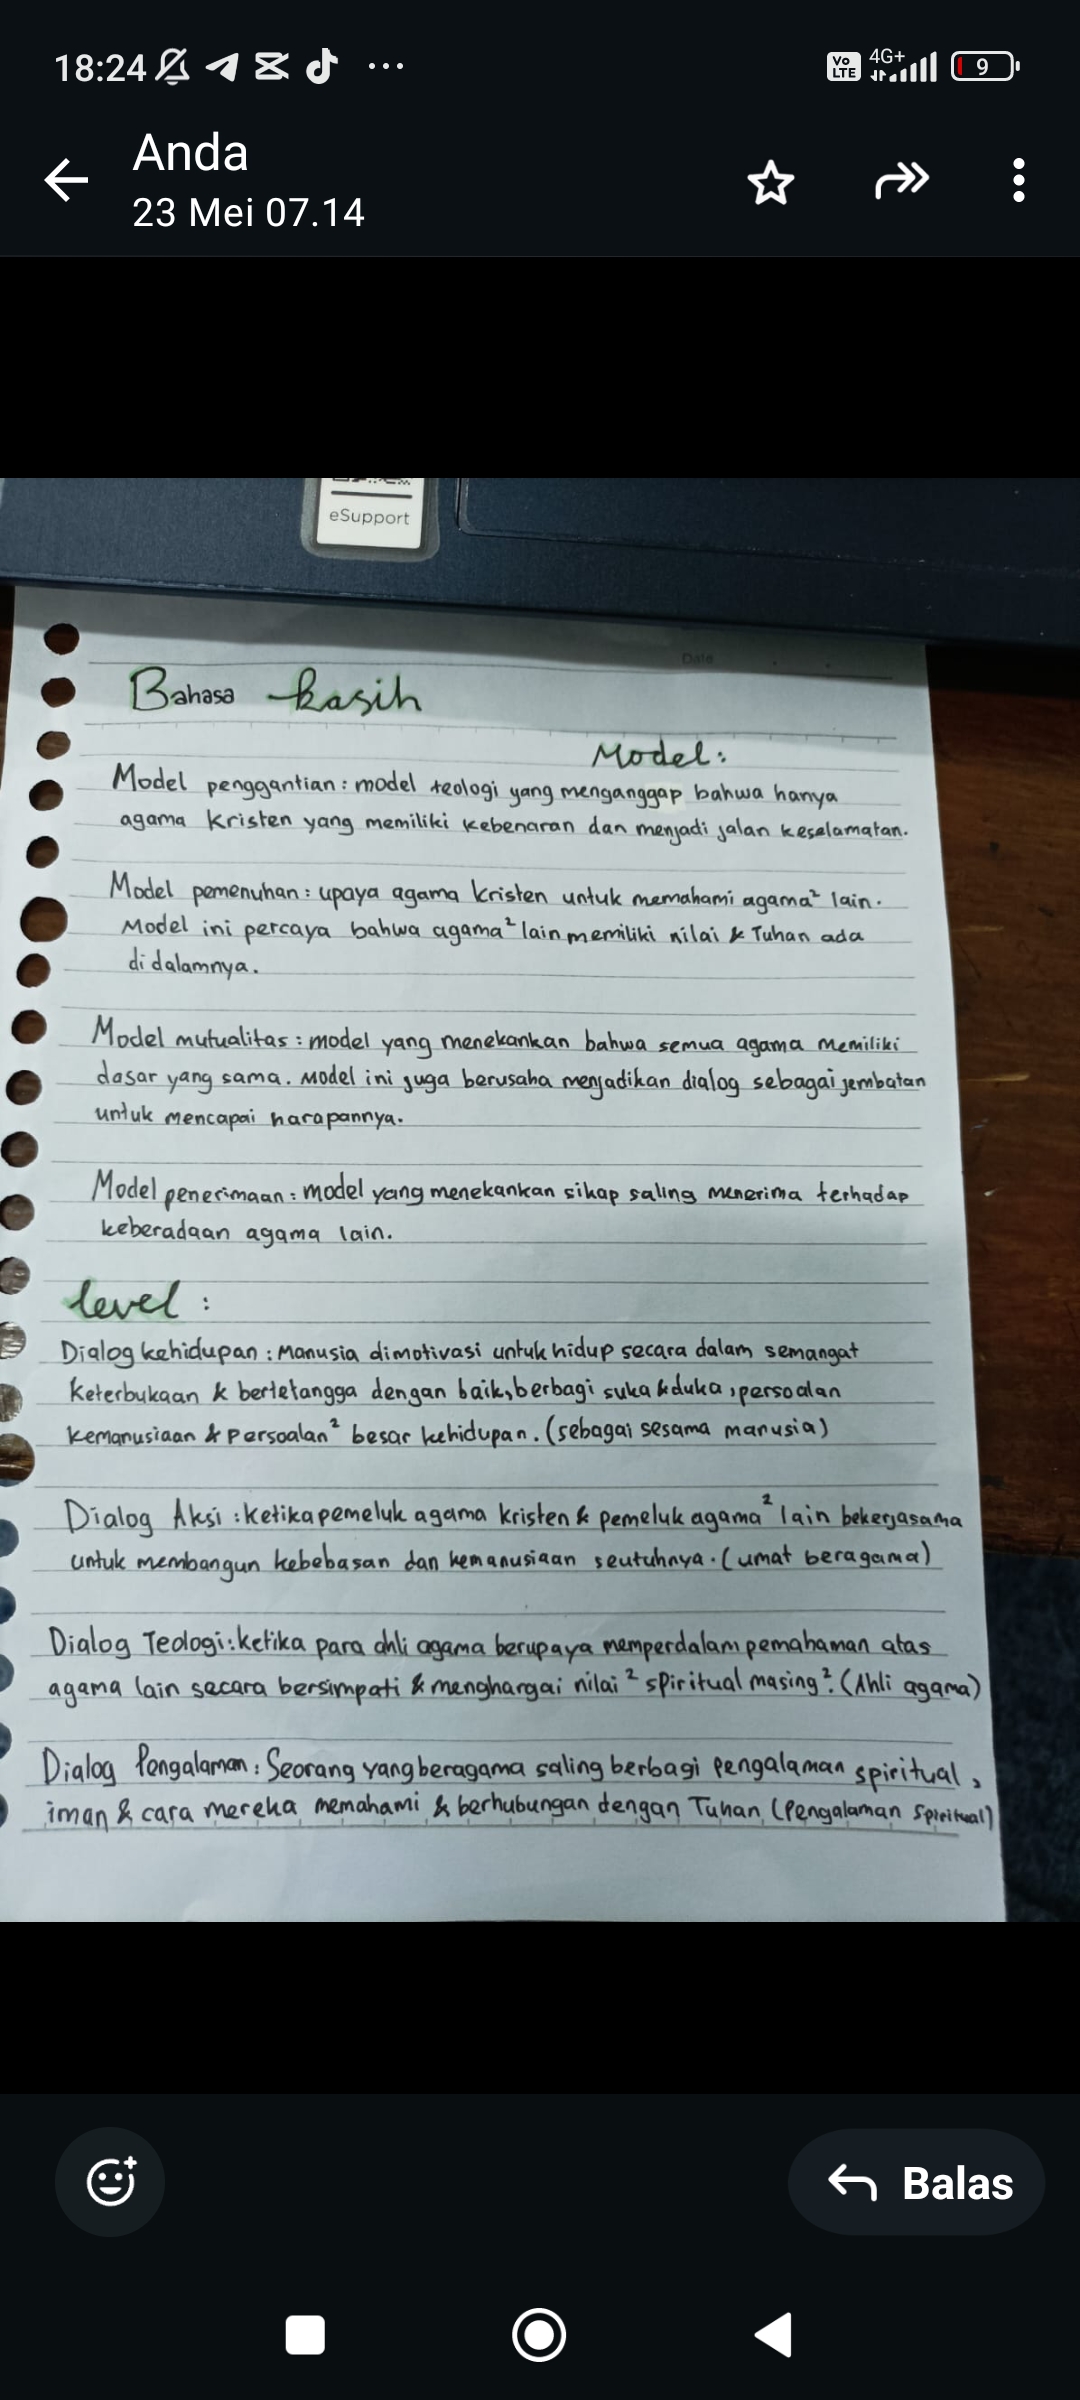 18:24 ... Vo LTE 4G+ 9
Anda
23 Mei 07.14
eSupport
Date
Bahasa kasih
Model:
Model penggantian : model teologi yang menganggap bahwa hanya
agama Kristen yang memiliki kebenaran dan menjadi jalan keselamatan.
Model pemenuhan : upaya agama Kristen untuk memahami agama² lain.
Model ini percaya bahwa agama² lain memiliki nilai & Tuhan ada
di dalamnya.
Model mutualitas : model yang menekankan bahwa semua agama memiliki
dasar yang sama. Model ini juga berusaha menjadikan dialog sebagai jembatan
untuk mencapai harapannya.
Model penerimaan : model yang menekankan sikap saling menerima terhadap
keberadaan agama lain.
level :
Dialog kehidupan : Manusia dimotivasi untuk hidup secara dalam semangat
Keterbukaan & bertetangga dengan baik, berbagi suka & duka, persoalan
kemanusiaan & persoalan² besar kehidupan. (sebagai sesama manusia)
Dialog Aksi : ketika pemeluk agama kristen & pemeluk agama² lain bekerjasama
untuk membangun kebebasan dan kemanusiaan seutuhnya. (umat beragama)
Dialog Teologi : ketika para ahli agama berupaya memperdalam pemahaman atas
agama lain secara bersimpati & menghargai nilai² spiritual masing². (Ahli agama)
Dialog Pengalaman : Seorang yang beragama saling berbagi pengalaman spiritual,
iman & cara mereka memahami & berhubungan dengan Tuhan (Pengalaman Spiritual)
Balas